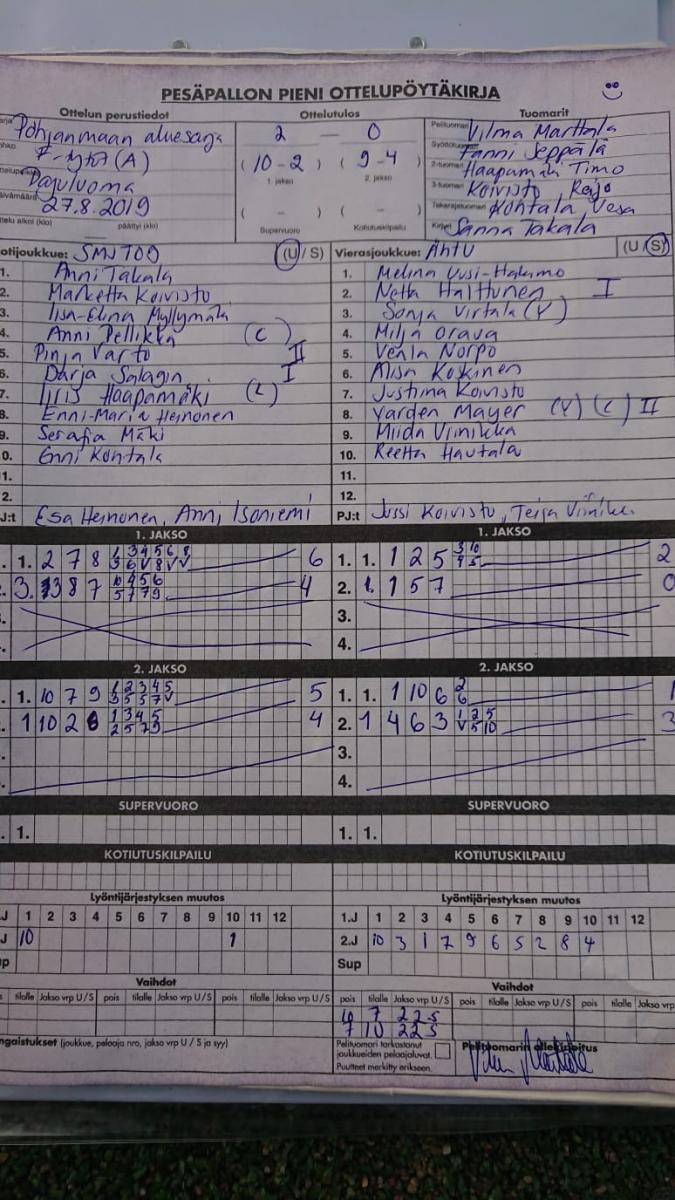 PESÄPALLON PIENI OTTELUPÖYTÄKIRJA
Ottelun perustiedot
Ottelutulos
Tuomarit
Pohjanmaan aluesarja
F-tytöt (A)
Pajuluoma
27.8.2019
päättyi (klo)
2 — 0
(10-2) (9-4)
1. jakso 2. jakso
( - ) ( - )
Supervuoro Kotiutuskilpailu
Vilma Marttala
Fanni Seppälä
Haapamäki Timo
Koivisto, Reijo
Kohtala Vesa
Sanna Takala
otijoukkue: SMJ TOO (U/S)
1. Anni Takala
2. Marketta Koivisto
3. Iisa-Elina Myllymäki
4. Anni Pellikka (C)
5. Pinja Varto II
6. Darja Salagin I
7. Iiris Haapamäki (L)
8. Enni-Maria Heinonen
9. Serafia Mäki
0. Enni Kontala
1.
2.
PJ:t Esa Heinonen, Anni Isoniemi
Vierasjoukkue: Ähtu (U/S)
1. Melina Uusi-Hakimo
2. Netta Halttunen I
3. Sonja Virtala (V)
4. Milja Orava
5. Veala Norpo
6. Alisa Koskinen
7. Justiina Koivisto
8. Yarden Mayer (V) (L) II
9. Miida Viinikka
10. Reetta Hautala
11.
12.
PJ:t Jussi Koivisto, Teija
1. JAKSO
1. 1. 2 7 8 6
2. 3. 3 8 7 4
1. JAKSO
1. 1. 1 2 5 2
2. 1. 1 5 7 0
3.
4.
2. JAKSO
1. 1. 10 7 9 5
1 10 2 6 4
2. JAKSO
1. 1. 1 10 6 1
2. 1 4 6 3 3
3.
4.
SUPERVUORO
1.
SUPERVUORO
1. 1.
KOTIUTUSKILPAILU
KOTIUTUSKILPAILU
Lyöntijärjestyksen muutos
J 1 2 3 4 5 6 7 8 9 10 11 12
J 10 1
up
Lyöntijärjestyksen muutos
1.J 1 2 3 4 5 6 7 8 9 10 11 12
2.J 10 3 1 7 9 6 5 2 8 4
Sup
Vaihdot
tilalle Jakso vrp U/S pois tilalle Jakso vrp U/S pois tilalle Jakso vrp U/S
Vaihdot
pois tilalle Jakso vrp U/S pois tilalle Jakso vrp U/S pois tilalle Jakso vrp
10 7 2 2 5
7 10 2 2 5
ngaistukset (joukkue, pelaaja nro, jakso vrp U / S ja syy)
Pelituomari tarkastanut
joukkueiden pelaajaluvat.
Puutteet merkitty erikseen.
Pelituomarin allekirjoitus